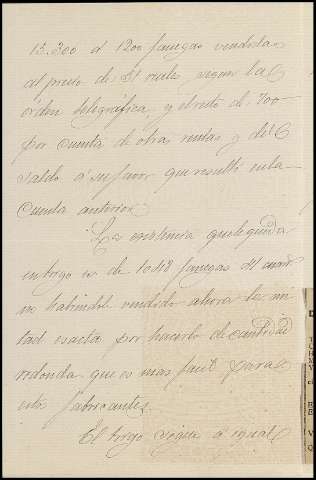 15.300 al 1200 fanegas vendidas
al precio de 51 reales segun la
órden telegráfica, y el resto de 700
por cuenta de otra rentas y del
saldo á su favor que resultó en la
cuenta anterior.
La existencia que le queda
en trigo es de 1048 fanegas
no habiendo vendido ahora la mi-
tad exacta por hacerlo de cantidad
redonda que es mas facil para
estos fabricantes.
El trigo sigue á igual